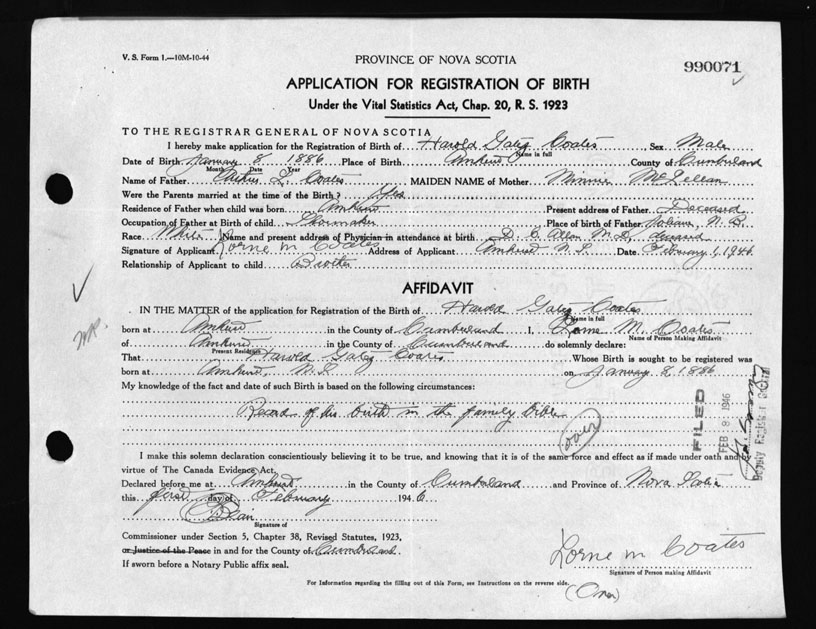 V. S. Form 1.—10M-10-44
PROVINCE OF NOVA SCOTIA
990071
APPLICATION FOR REGISTRATION OF BIRTH
Under the Vital Statistics Act, Chap. 20, R. S. 1923
TO THE REGISTRAR GENERAL OF NOVA SCOTIA
I hereby make application for the Registration of Birth of Harold Coates Sex Male
Name in full
Date of Birth January 8 1886 Place of Birth Amherst County of Cumberland
Month Date Year
Name of Father L. Coates MAIDEN NAME of Mother Minnie McLellan
Were the Parents married at the time of the Birth? Yes
Residence of Father when child was born Amherst Present address of Father Deceased
Occupation of Father at Birth of child Shoemaker Place of birth of Father N. B.
Race White Name and present address of Physician in attendance at birth D. C. Allan M. D.
Signature of Applicant Lorne M Coates Address of Applicant Amherst N. S. Date February 1, 1946
Relationship of Applicant to child Brother
AFFIDAVIT
IN THE MATTER of the application for Registration of the Birth of Harold Coates
Name in full
born at Amherst in the County of Cumberland I, Lorne M. Coates
Name of Person Making Affidavit
of Amherst in the County of Cumberland do solemnly declare:
Present Residence
That Harold Coates Whose Birth is sought to be registered was
born at Amherst N. S. on January 8 1886
My knowledge of the fact and date of such Birth is based on the following circumstances:
Record of his birth in the family bible
over
FILED
FEB 8 1946
I make this solemn declaration conscientiously believing it to be true, and knowing that it is of the same force and effect as if made under oath and by
virtue of The Canada Evidence Act.
Declared before me at Amherst in the County of Cumberland and Province of Nova Scotia
this first day of February 1946
Blair
Signature of
Commissioner under Section 5, Chapter 38, Revised Statutes, 1923,
or Justice of the Peace in and for the County of Cumberland.
If sworn before a Notary Public affix seal.
Lorne M Coates
Signature of Person making Affidavit
For Information regarding the filling out of this Form, see Instructions on the reverse side.
(Over)